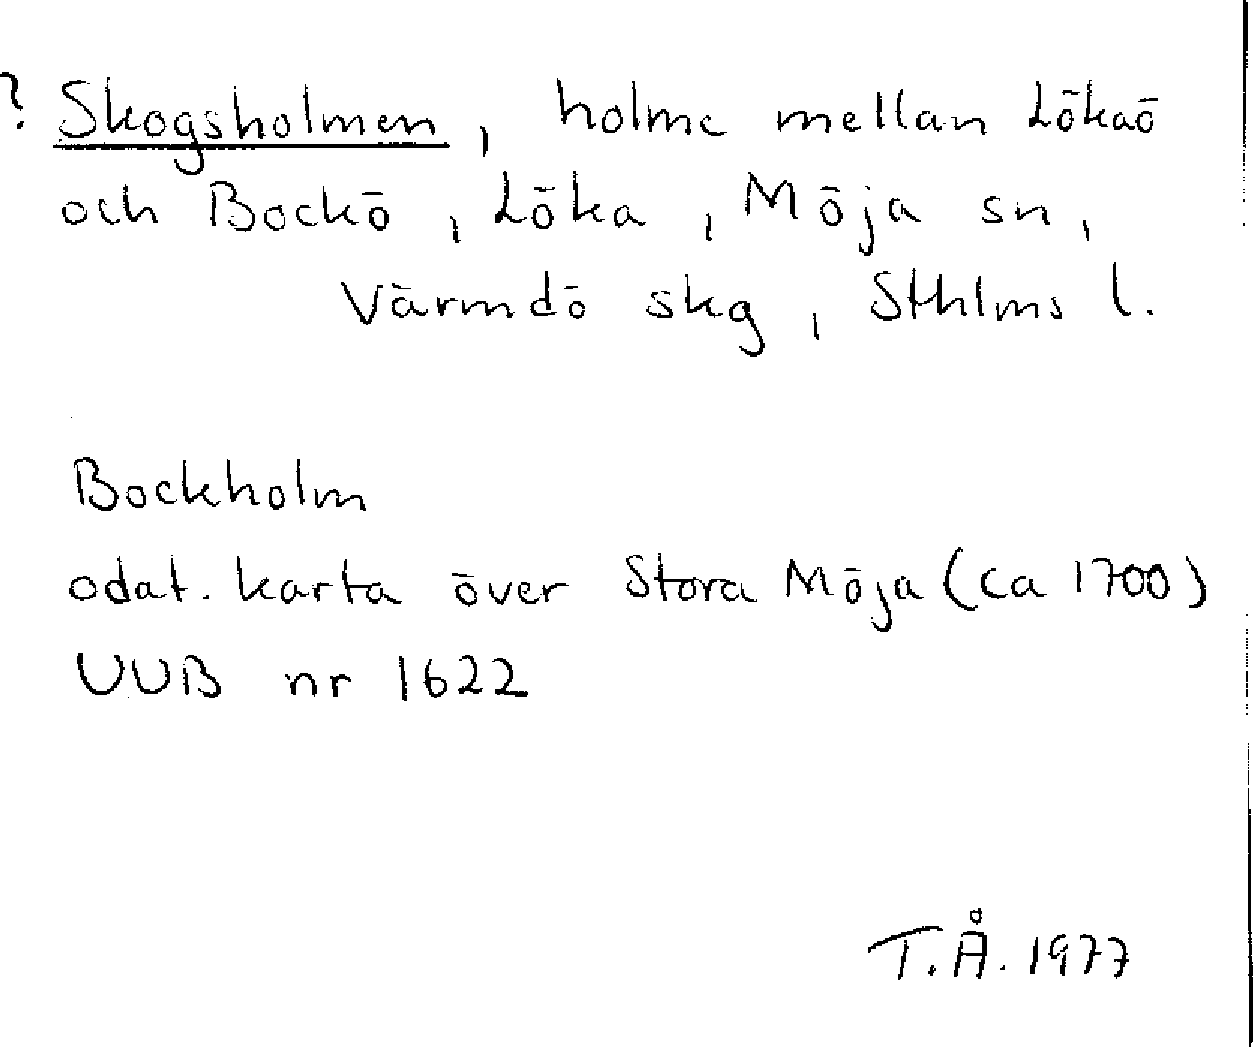 ? Skogsholmen, holme mellan Lökaö
och Bockö, Löka, Möja sn,
Värmdö skg, Sthlms l.
Bockholm
odat. karta över Stora Möja (ca 1700)
UUB nr 1622
T.Å. 1977